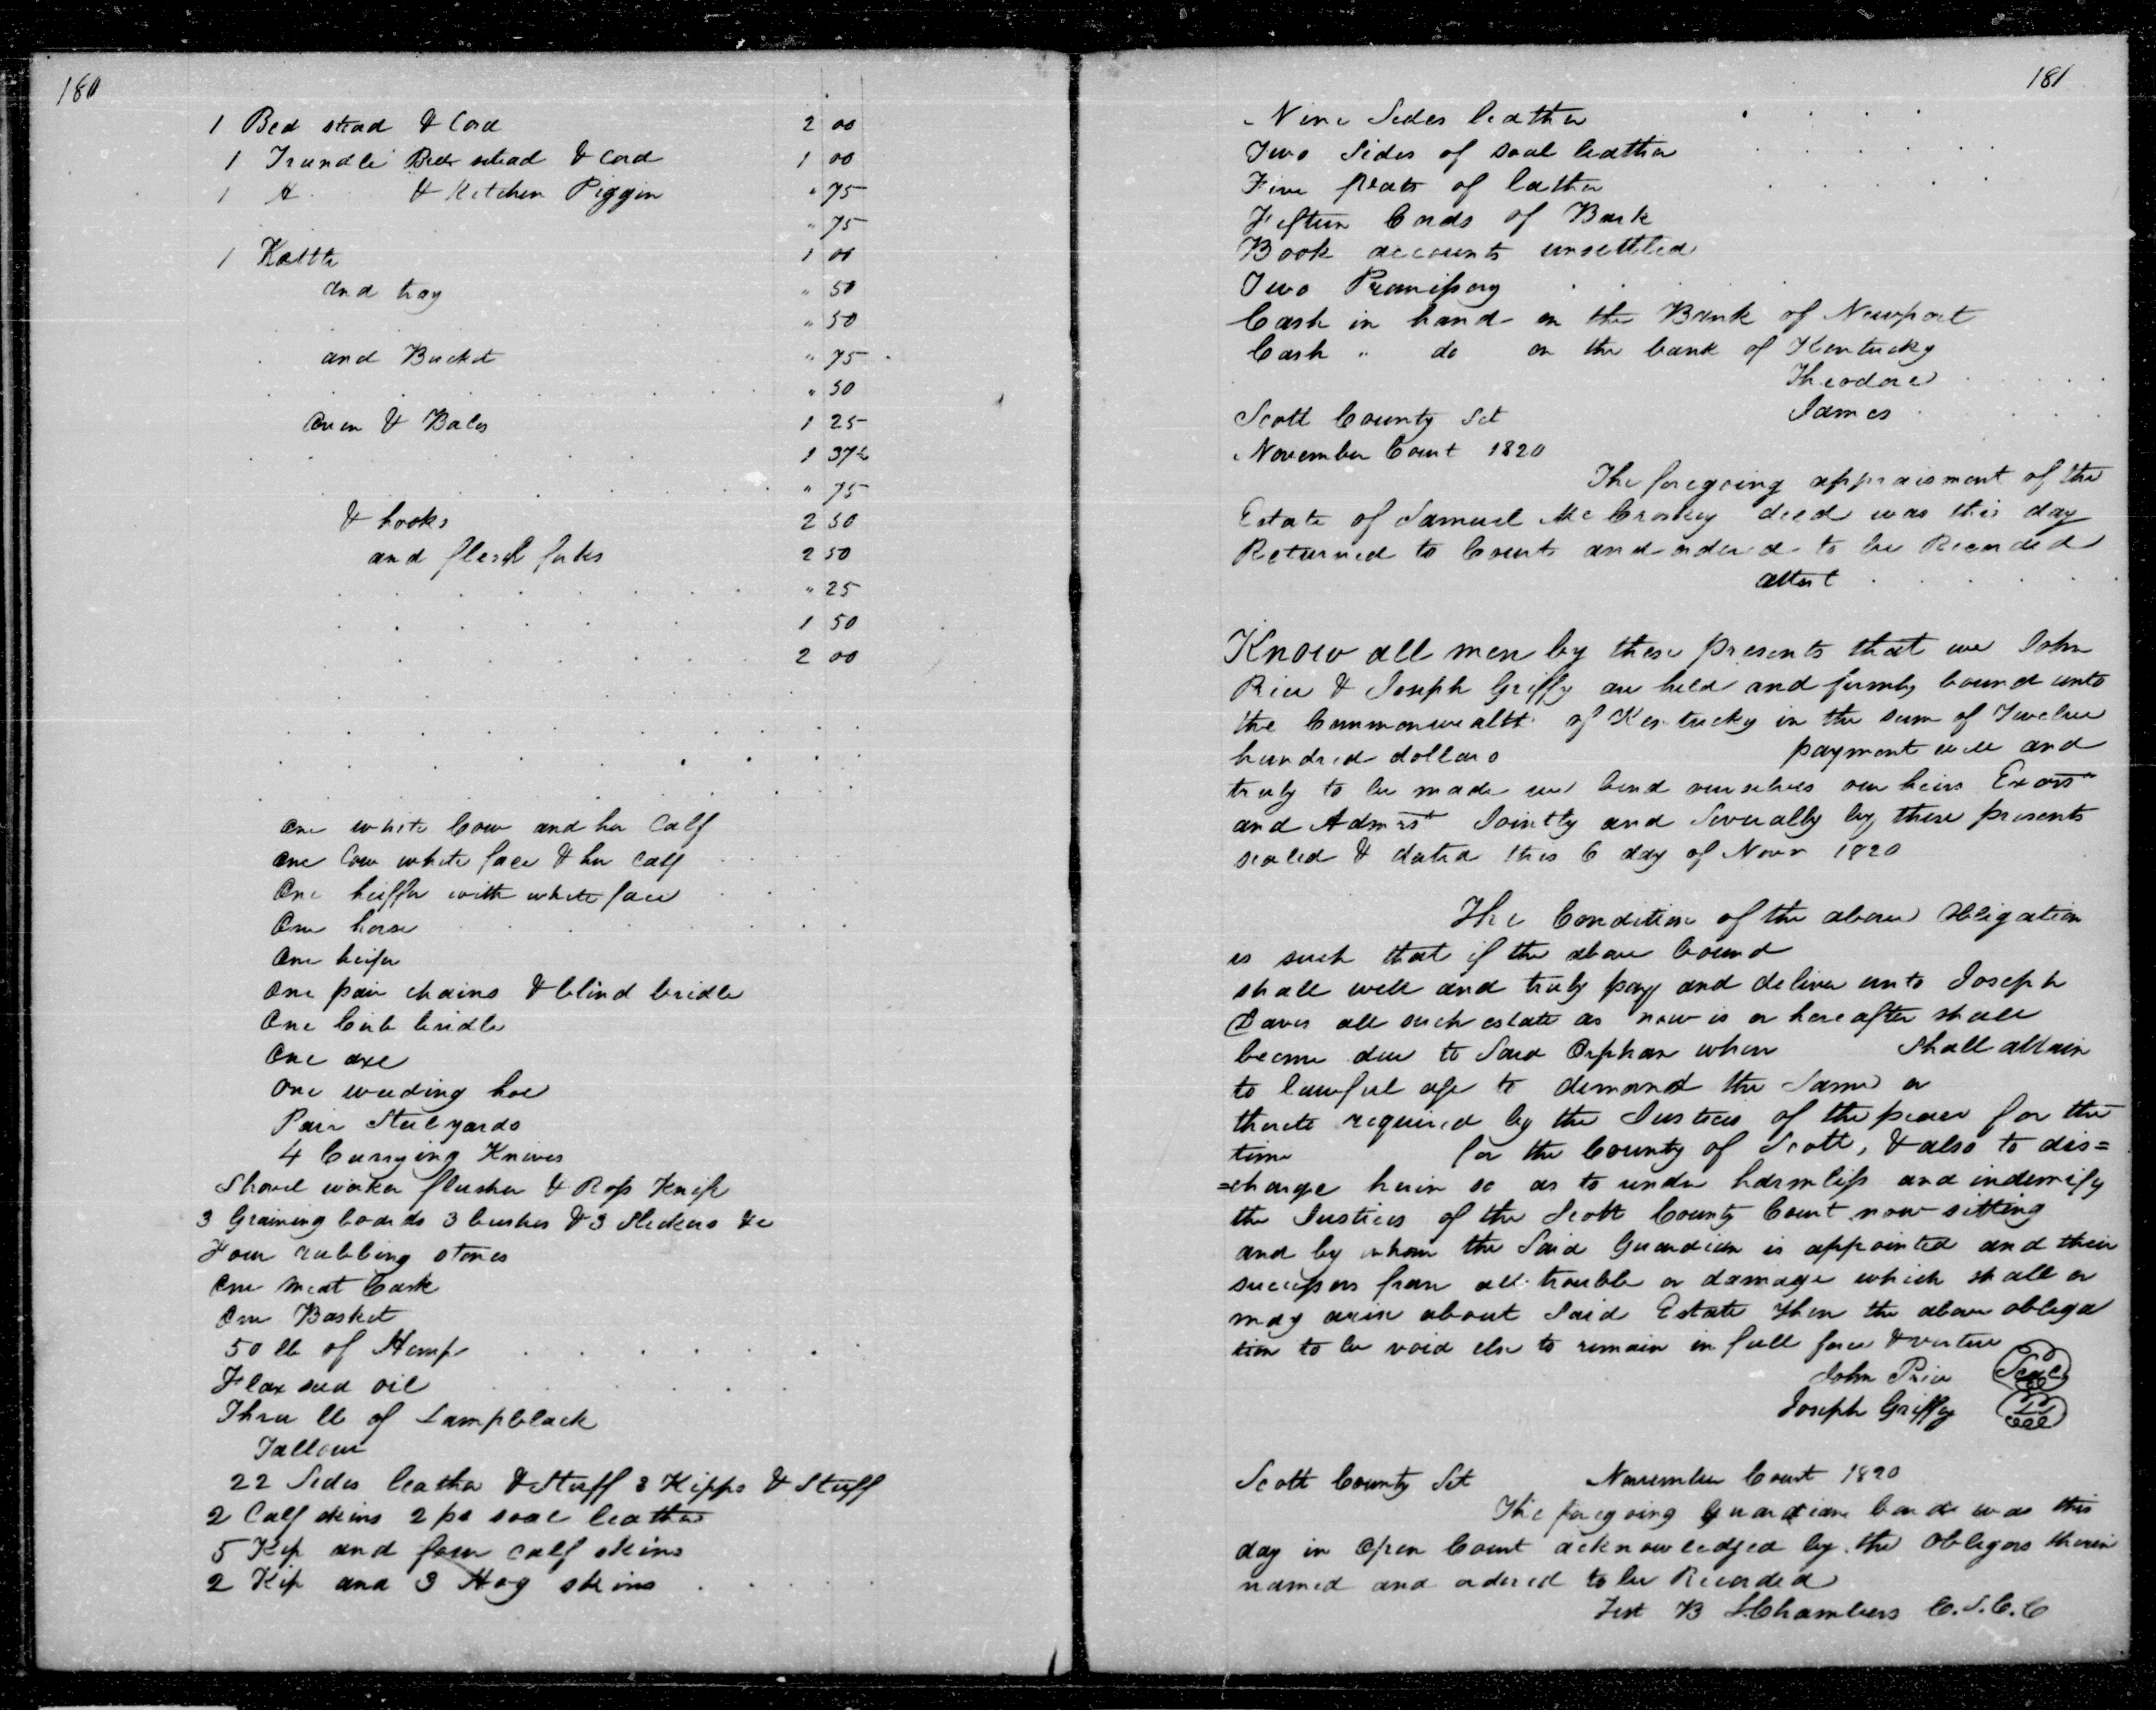 180
1 Bed stead & Cord 2 00
1 Trundle Bed stead & Cord 1 00
1 A & Kitchen Piggin " 75
" 75
1 Kettle 1 00
and tray " 50
" 50
and Bucket " 75
" 50
Oven & Bales 1 25
1 37½
" 75
& hooks 2 50
and flesh forks 2 50
" 25
1 50
2 00
One white Cow and her Calf
One Cow white face & her Calf
One heiffer with white face
One horse
One heifer
One pair chains & blind bridle
One Curb bridle
One axe
One weeding hoe
Pair Steelyards
4 Currying Knives
Shovel worker flusher & Ross Knife
3 Graining boards 3 brushes & 3 Slickers &c
Four rubbing stones
One meat Cask
One Basket
50 lb of Hemp
Flax seed oil
Three lb of Lampblack
Tallow
22 Sides leather & Stuff 3 Kipps & Stuff
2 Calf skins 2 ps soal leather
5 Kip and four calf skins
2 Kip and 3 Hog skins
181
Nine Sides leather
Two Sides of soal leather
Five of lather
Fifteen Cords of Bark
Book accounts unsettled
Two Promissory
Cash in hand on the Bank of Newport
Cash " do on the bank of Kentucky
Theodore
Scott County Sct James
November Court 1820
The foregoing appraisment of the
Estate of Samuel McCroskey decd was this day
Returned to Court and ordered to be Recorded
attest
Know all men by these presents that we John
Price & Joseph Griffy are held and firmly bound unto
the Commonwealth of Kentucky in the sum of Twelve
hundred dollars payment well and
truly to be made we bend ourselves our heirs Exors
and Admrs Jointly and Severally by these presents
sealed & dated this 6 day of Novr 1820
The Condition of the above Obligation
is such that if the above bound
shall well and truly pay and deliver unto Joseph
Davis all such estate as now is or hereafter shall
become due to Said Orphan when shall attain
to lawful age to demand the Same or
thereto required by the Justices of the peace for the
time for the County of Scott, & also to dis=
=charge herin so as to render harmless and indemnify
the Justices of the Scott County Court now sitting
and by whom the Said Guardian is appointed and their
successors from all trouble or damage which shall or
may arise about Said Estate then the above obliga
tion to be void else to remain in full force & vertue
John Price Seal
Joseph Griffy
Scott County Sct November Court 1820
The foregoing guardian bond was this
day in Open Court acknowledged by the Obligors therin
named and ordered to be Recorded
Test B S Chambers C.S.C.C